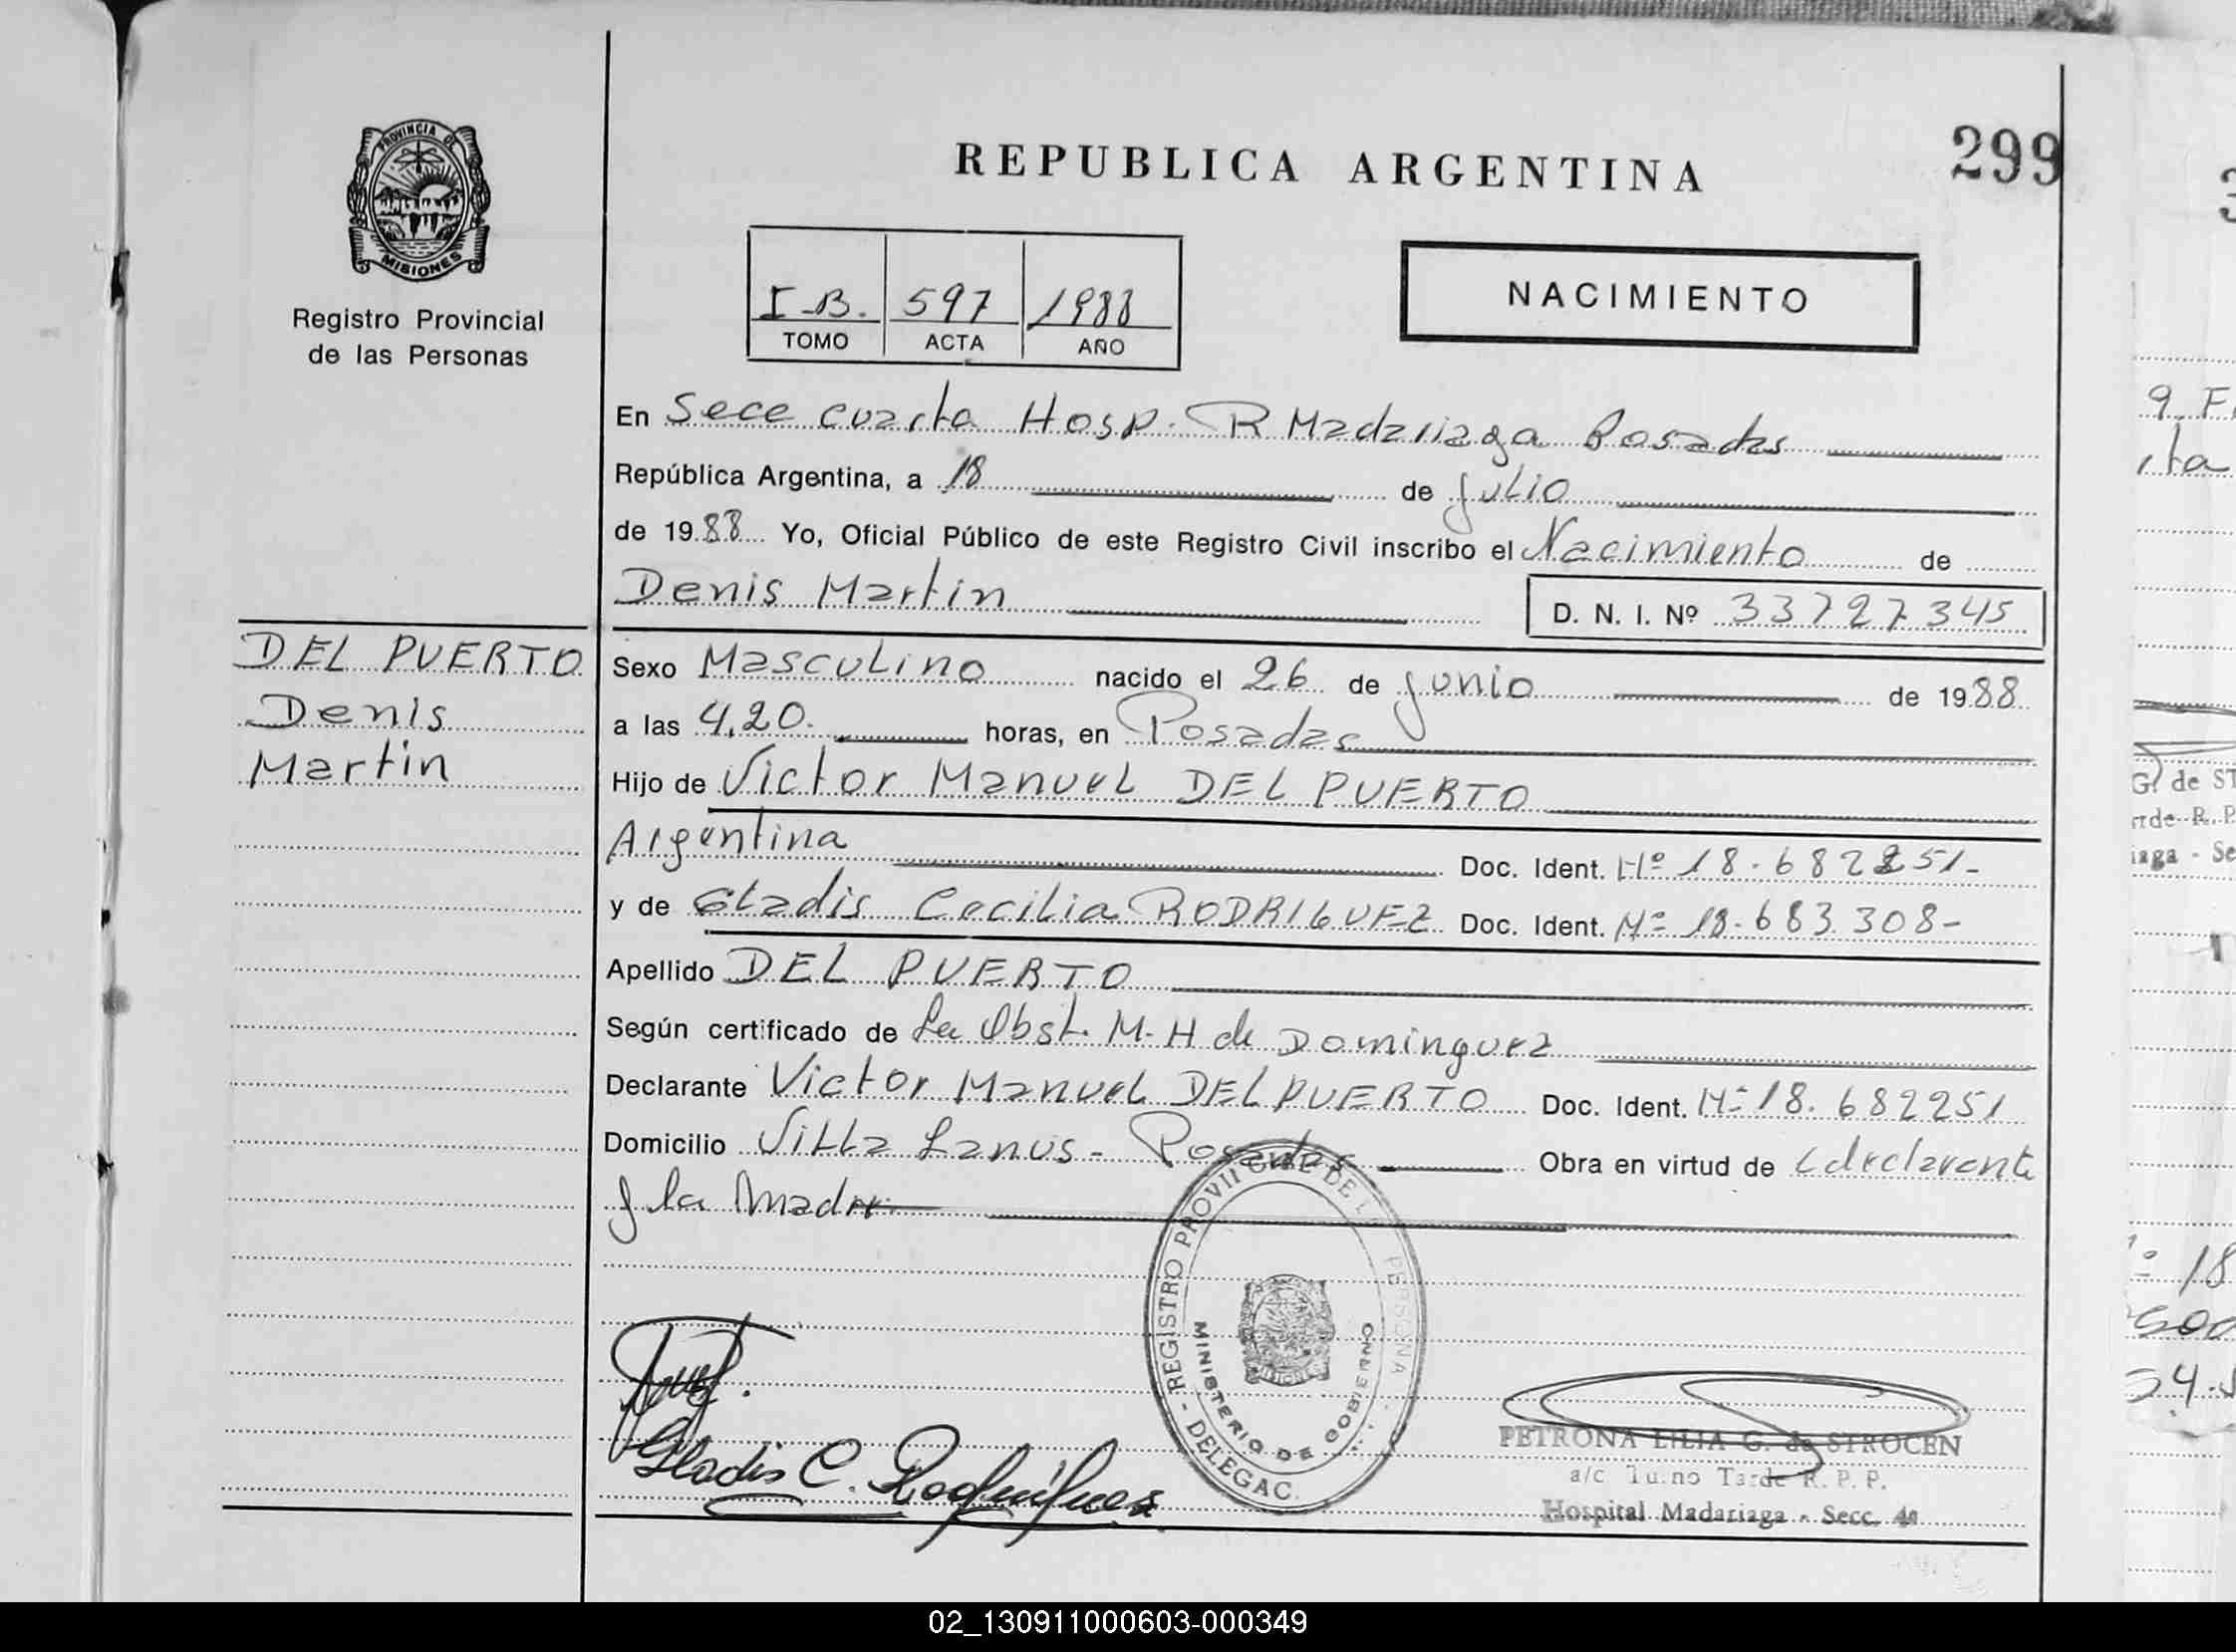 REPUBLICA ARGENTINA
299
PROVINCIA DE
MISIONES
Registro Provincial
de las Personas
I-B. 597 1988
TOMO ACTA AÑO
NACIMIENTO
En Secc cuarta Hosp. R Madariaga Posadas
República Argentina, a 18 de julio
de 1988 Yo, Oficial Público de este Registro Civil inscribo el Nacimiento de
Denis Martin
D. N. I. Nº 33727345
DEL PUERTO
Denis
Martin
Sexo Masculino nacido el 26 de junio de 1988
a las 4,20. horas, en Posadas
Hijo de Victor Manuel DEL PUERTO
Argentina Doc. Ident. Nº 18.682251-
y de Gladis Cecilia RODRIGUEZ Doc. Ident. Nº 18.683.308-
Apellido DEL PUERTO
Según certificado de La Obst. M. H de Dominguez
Declarante Victor Manuel DEL PUERTO Doc. Ident. Nº 18.682251
Domicilio Villa Lanus - Posadas Obra en virtud de declarante
y la Madre
REGISTRO PROVINCIAL DE LAS PERSONAS - DELEGAC.
MINISTERIO DE GOBIERNO
Gladis C. Rodríguez
PETRONA LILIA G. de STROCEN
a/c Turno Tarde R. P. P.
Hospital Madariaga - Secc. 4ª
3
9. F
ita
G. de ST
rde R. P
iaga - Se
º 18
24.
02_130911000603-000349